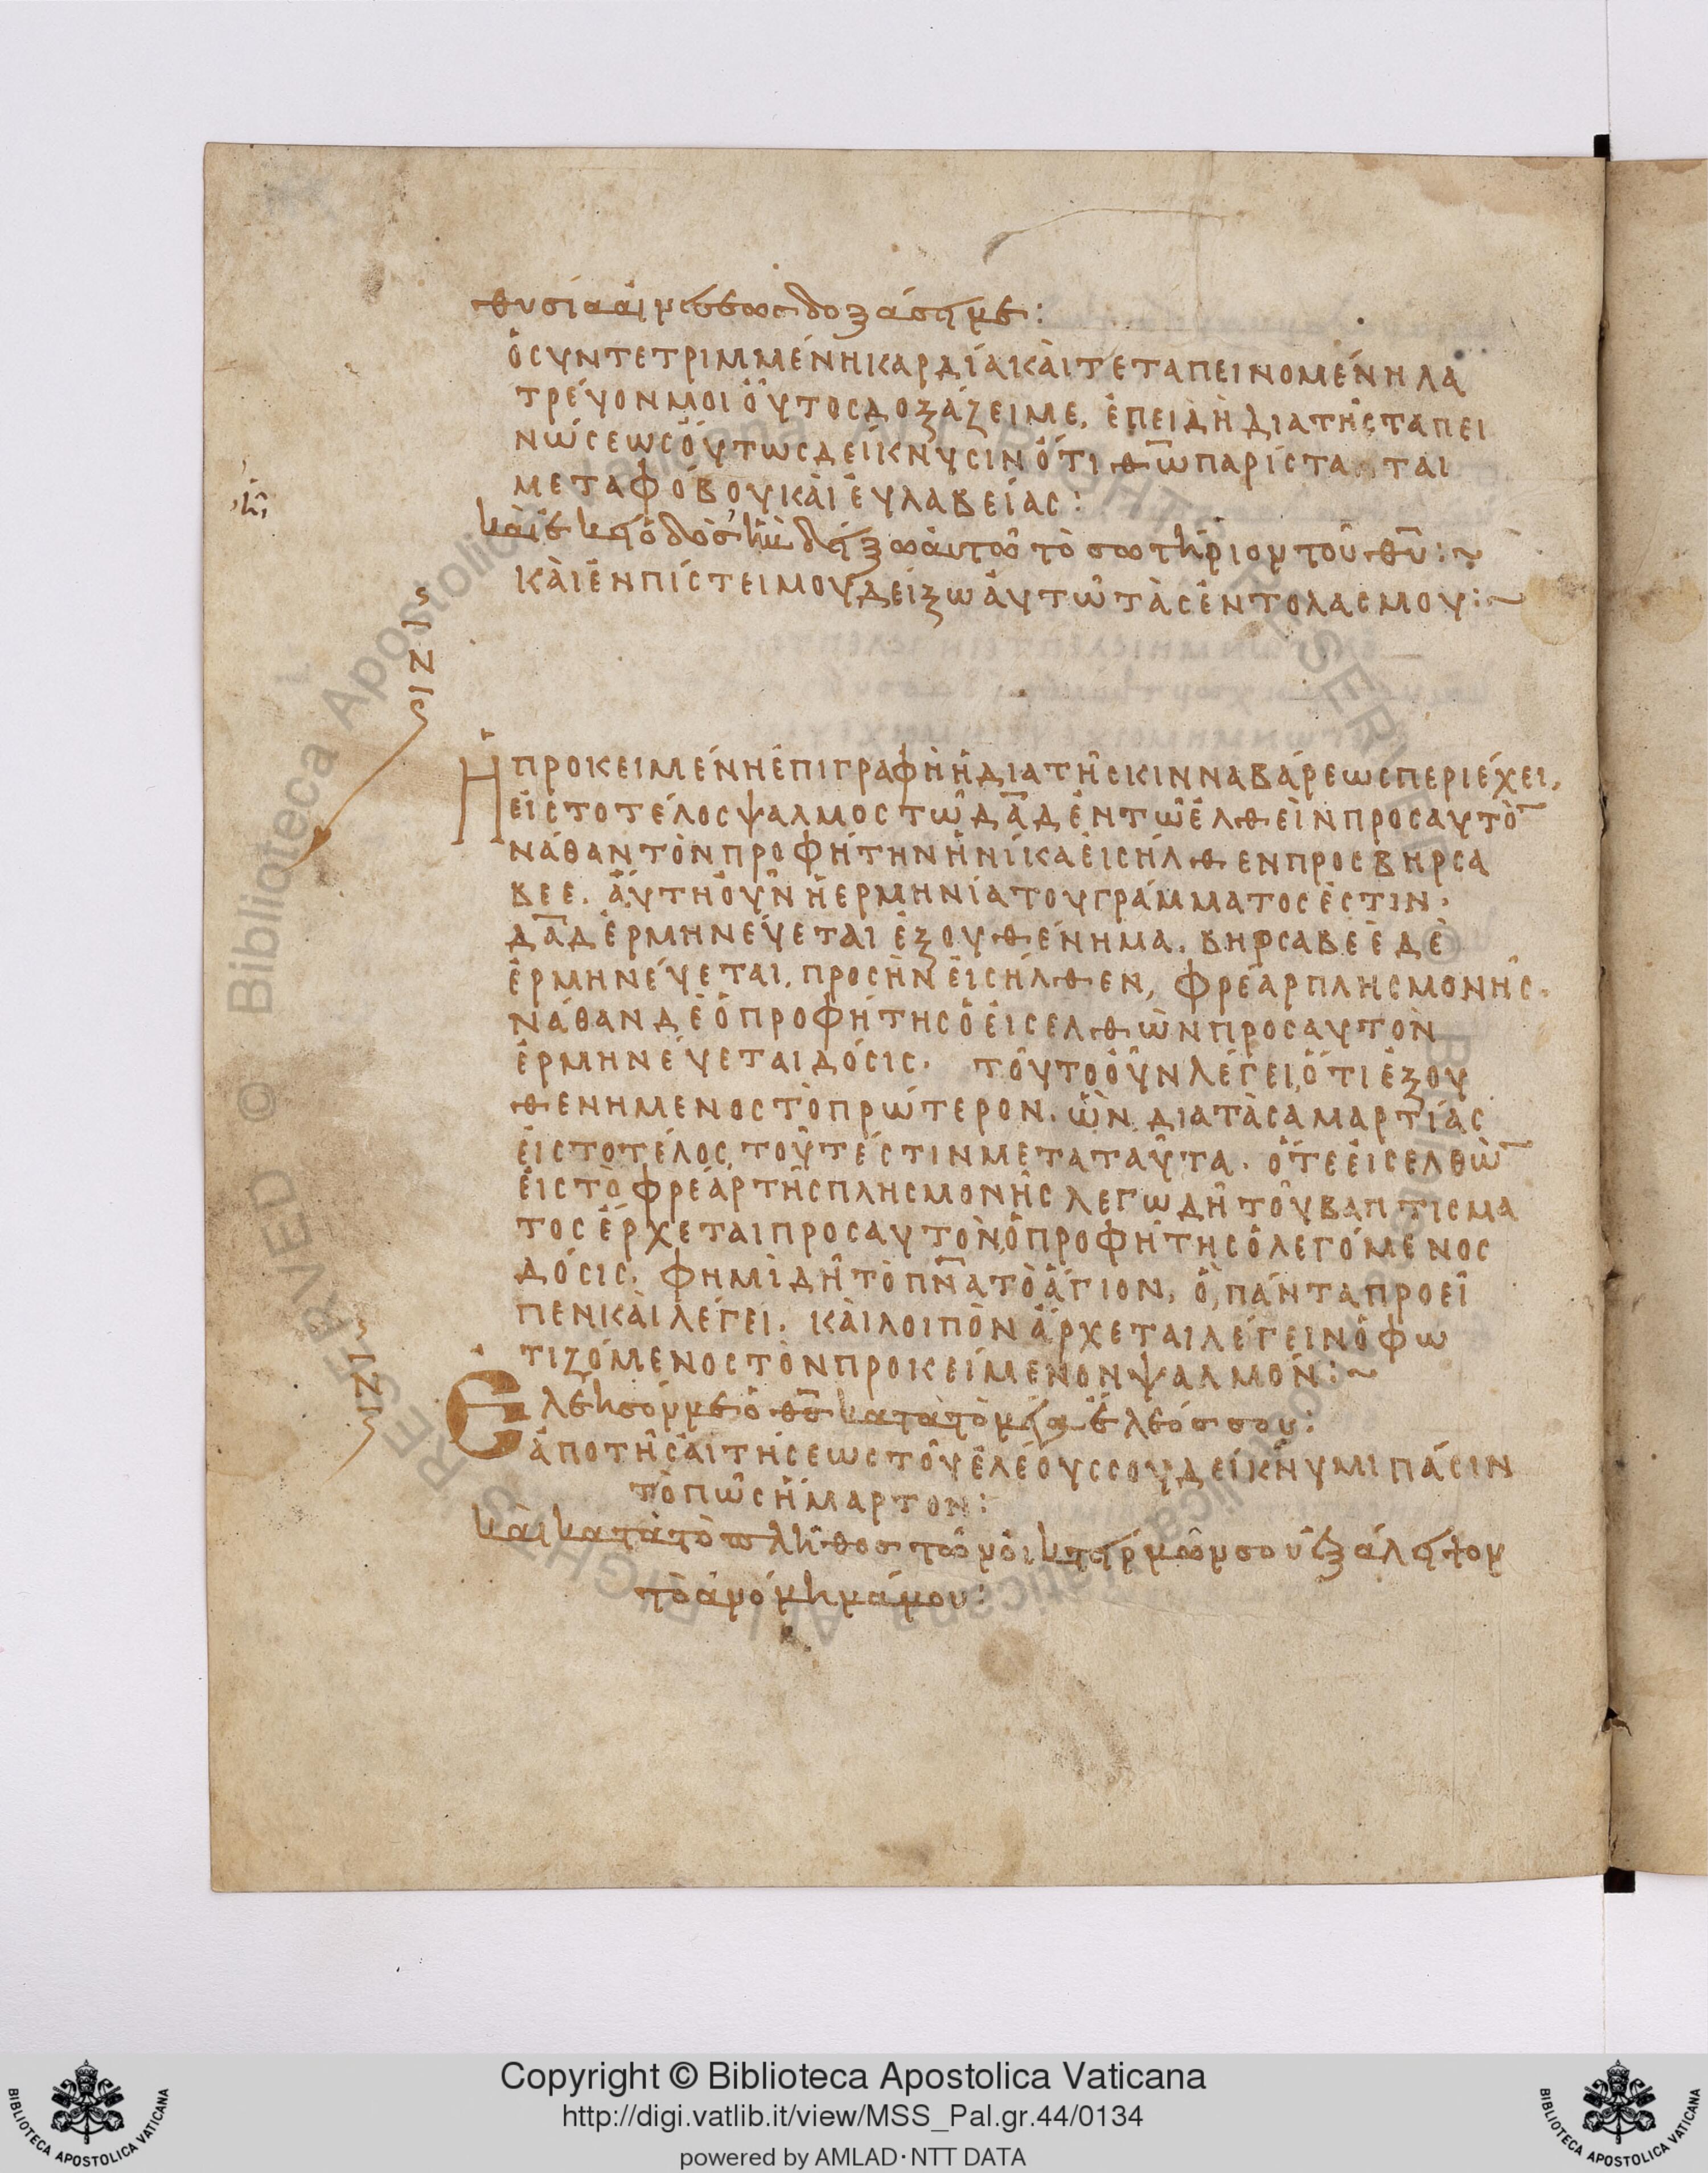 θυσία αἰνέσεως δοξάσει με:
ὁ συντετριμμένη καρδία καὶ τεταπεινομένη λα
τρέυον μοι ὅυτος δοξάζει με. ἐπειδὴ διατῆς ταπει
νώσεως ὅυτως δείκνυσιν ὅτι θω παρίσταται
μετα φόβου καὶ ἐυλαβείας:
καὶ ἐκεῖ ὁδὸς ἧ δείξω ἀυτῶ τὸ σωτήριον τοῦ θυ:~
Κὰι ἐν πίστει μου δείξω ἀυτῶ τὰς ἐντολας μου:~
Ἡ προκειμένη ἐπιγραφὴ ἡ δια τῆς κινναβάρεως περιέχει,
εἰς το τέλος ψαλμος τῶ δαδ ἐν τῶ ἐλθεὶν προς αυτὸ
νάθαν τὸν προφήτην ἡνίκα ἐισήλθεν προς βηρσα
βεε. ἅυτη ὀυν ἡ ερμηνία του γράμματος ἐστιν.
δαδ ἑρμηνέυεται ἐξουθένημα. βηρσαβεὲ δὲ
ἑρμηνέυεται, προς ἣν ἐισήλθεν, φρέαρ πλησμονῆς.
νάθαν δὲ ὁ προφήτης ὁ ἐισελθὼν προς αυτὸν
ἑρμηνέυεται δόσις. τοῦτο ὀῦν λέγει, ὅτι ἐξου
θενημενος τὸ πρώτερον. ὢν δια τὰς αμαρτίας
ἐις το τέλος, τοῦτέστιν μετα ταῦτα. ὅτε ἐισελθὼ
ἐις τὸ φρέαρ τῆς πλησμονῆς λεγω δὴ τοῦ βαπτισμα
τος ἔρχεται προς αυτὸν, ὁ προφήτης ὁ λεγόμενος
δόσις. φημὶ δὴ τὸ πνα τὸ ἅγιον, ὃ, πάντα προεῖ
πεν καὶ λέγει. κὰι λοιπὸν ἄρχεται λέγειν ὁ φω
τιζόμενος τὸν προκείμενον ψαλμόν:~
Ἐλέησόν με ὁ θς κατα τὸ μέγα ἔλεός σου:
ἀπο τῆς ἀιτήσεως τοῦ ἐλέους σου δείκνυμι πάσιν
τὸ πῶς ἥμαρτον:
Κὰι κατὰ τὸ πλῆθος τῶν ὀικτειρμῶν σου ἐξάλειψον
τὸ ἀνόμημά μου:
Copyright © Biblioteca Apostolica Vaticana
http://digi.vatlib.it/view/MSS_Pal.gr.44/0134
powered by AMLAD·NTT DATA
BIBLIOTECA APOSTOLICA VATICANA
BIBLIOTECA APOSTOLICA VATICANA